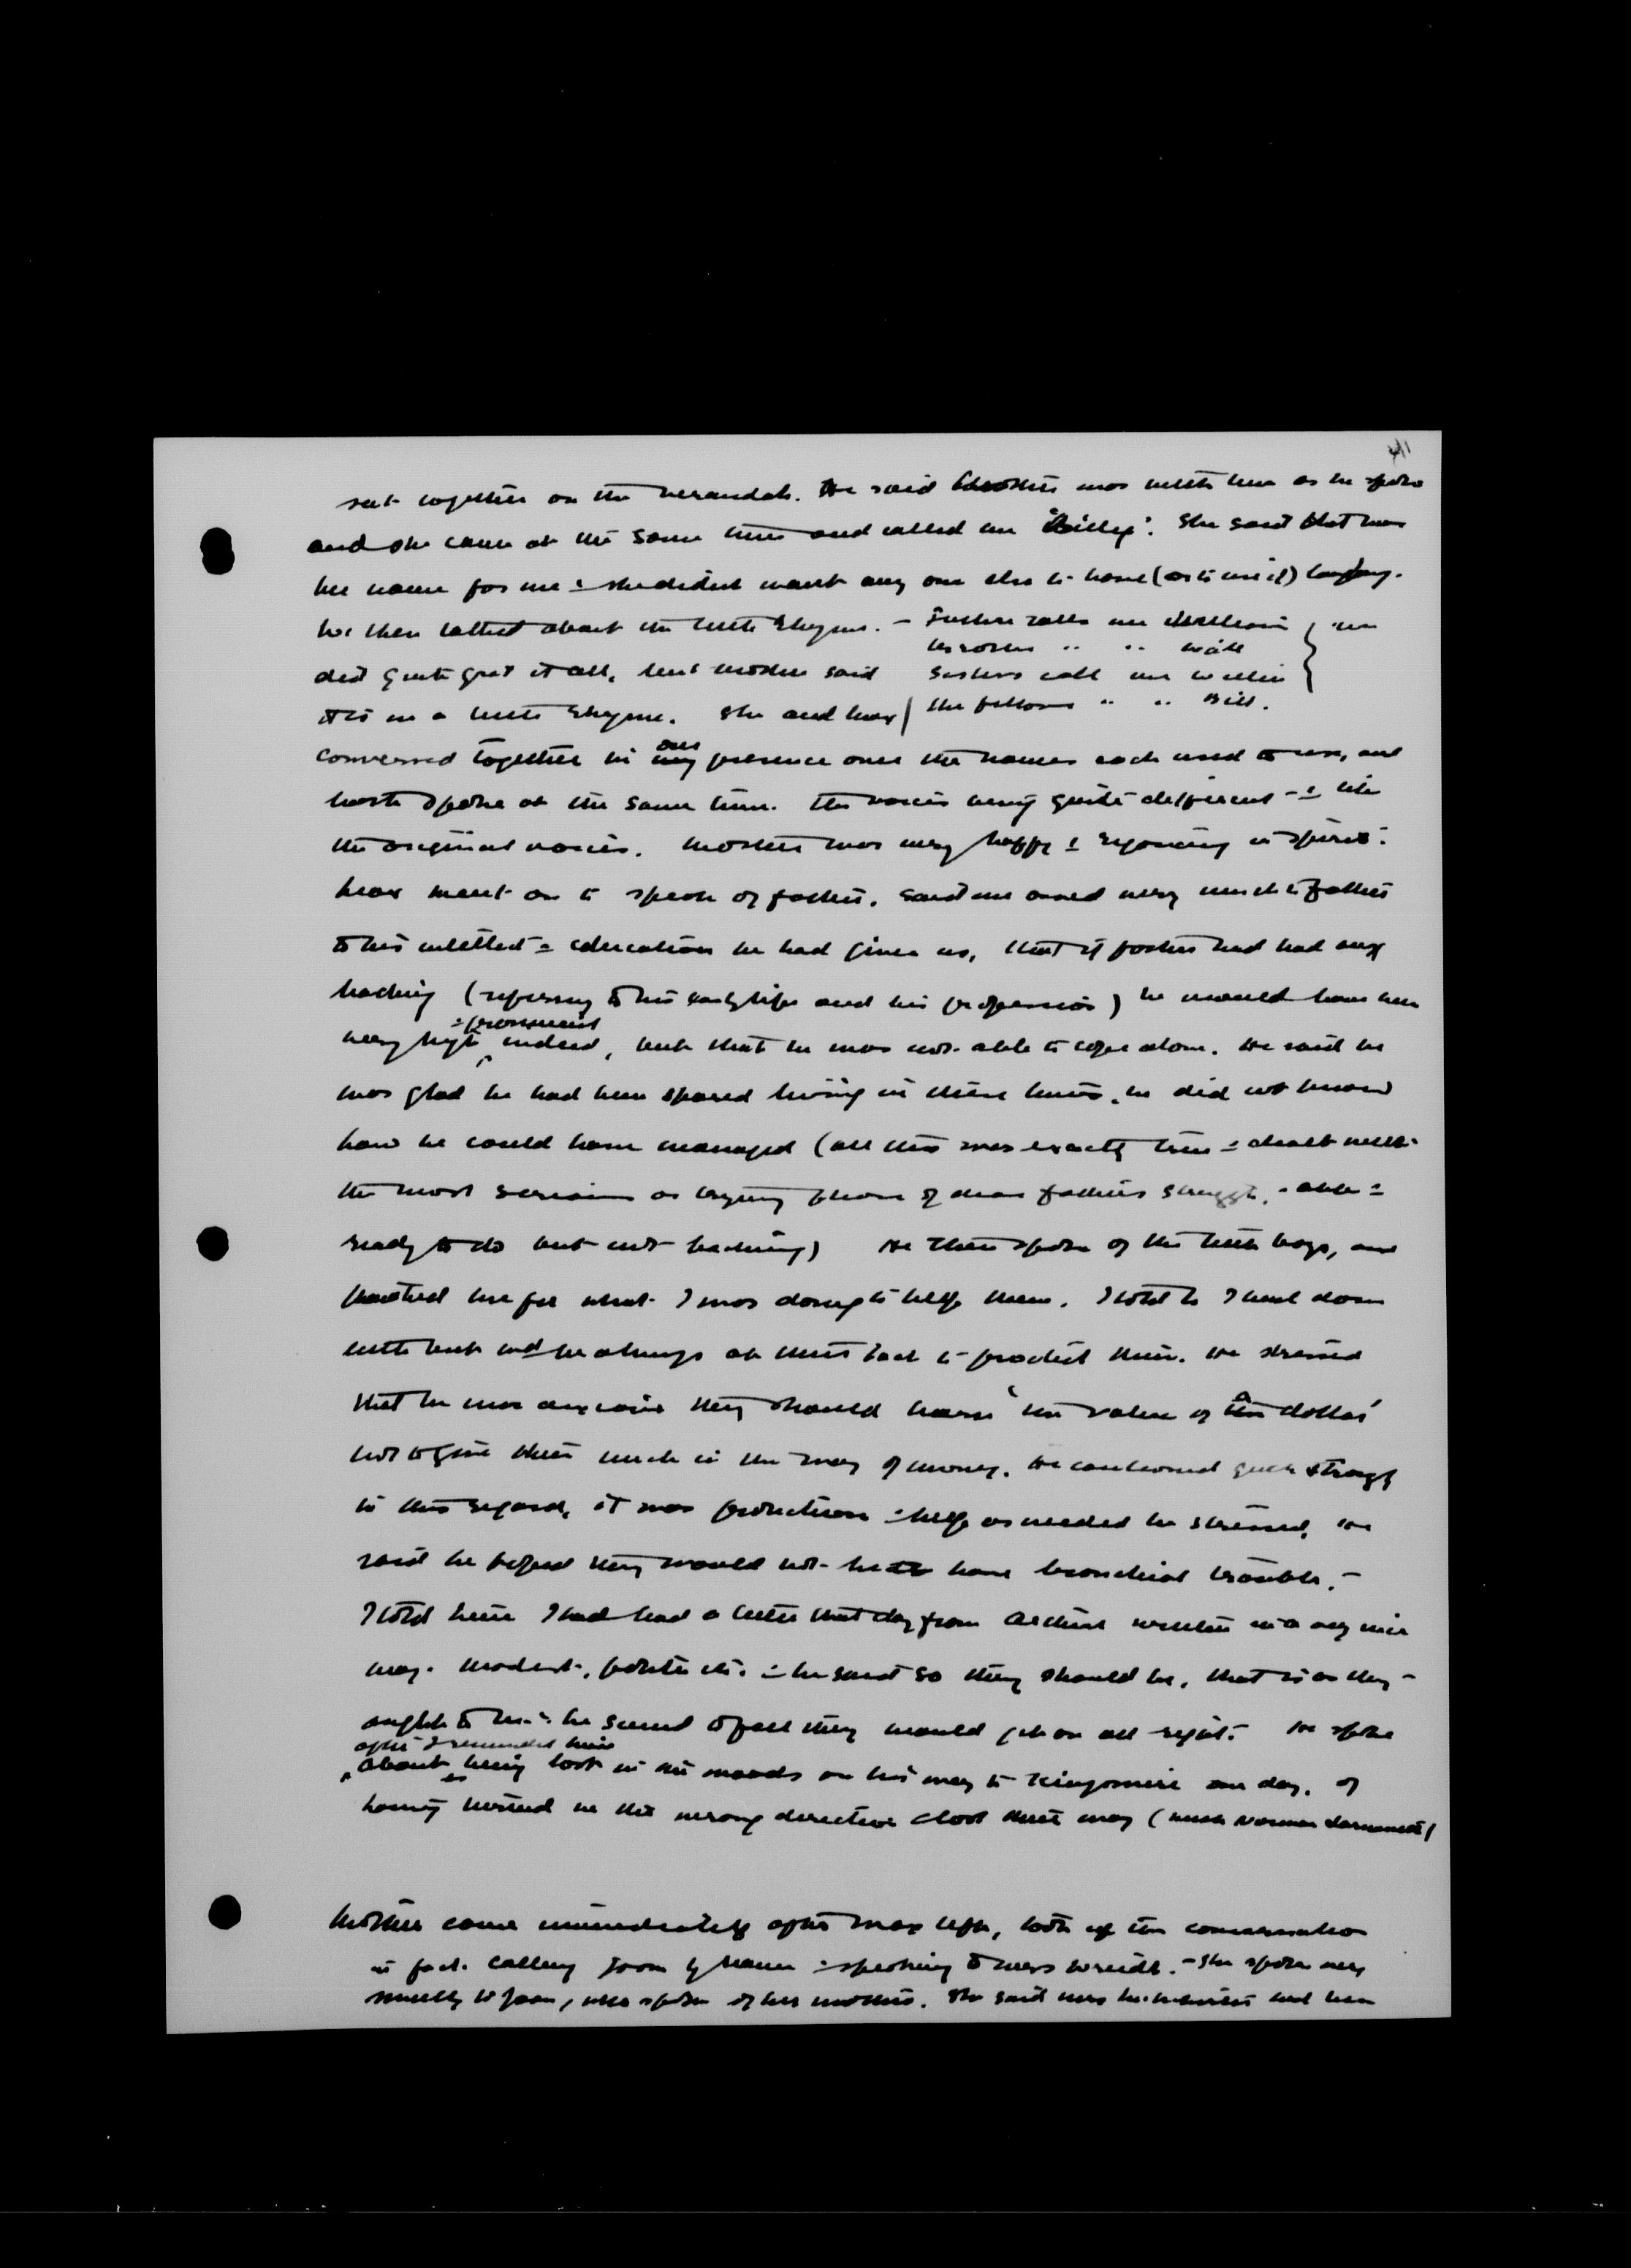 sat together on the verandah. He said Mother was with him as he spoke
and she came at the same time and called me "Billy". She said that was
her name for me & she didn't want any one else to have (or to use it)
We then talked about the little rhyme. – Father calls me William
Brother " " Will
did quite get it all, but mother said Sisters call me Willie
It is in a little rhyme. She and Max the fellows " " Bill.
conversed together in our presence over the names each used to use, and
both spoke at the same time. The voices being quite different – & like
the original voices. Mother was very happy & rejoicing in spirit.
Max went on to speak of father. Said we owed very much to father
to his intellect & education he had given us, that if father had had any
backing (referring to his early life and his profession) he would have been
very high & prominent indeed, but that he was not able to cope alone. He said he
was glad he had been spared living in these times, he did not know
how he could have managed (all this was exactly true & dealt with
the most serious or trying phase of dear father's struggle, – able &
ready to do but not backing) He then spoke of the little boys, and
thanked me for what I was doing to help them. I told him I had done
little but would be always at their back to protect them. He stressed
that he was anxious they should learn 'the value of the dollar'
not to give them much in the way of money. He cautioned quite strongly
in this regard, it was protection & help as needed he stressed. He
said he hoped they would not have bronchial trouble. –
I told him I had had a letter that day from Arthur written in a very nice
way. Modest, polite etc. – he said so they should be, that is as they –
ought to be. – he seemed to feel they would get on all right. He spoke
after I reminded him
about being lost in the woods on his way to Kingsmere one day, of
having turned in the wrong direction & lost their way (with Norman
Mother came immediately after Max left, took up the conversation
in fact. Calling Joan by name & speaking to Mrs Wriedt. – She spoke very
sweetly to Joan, who spoke of her mother. She said Mrs had been